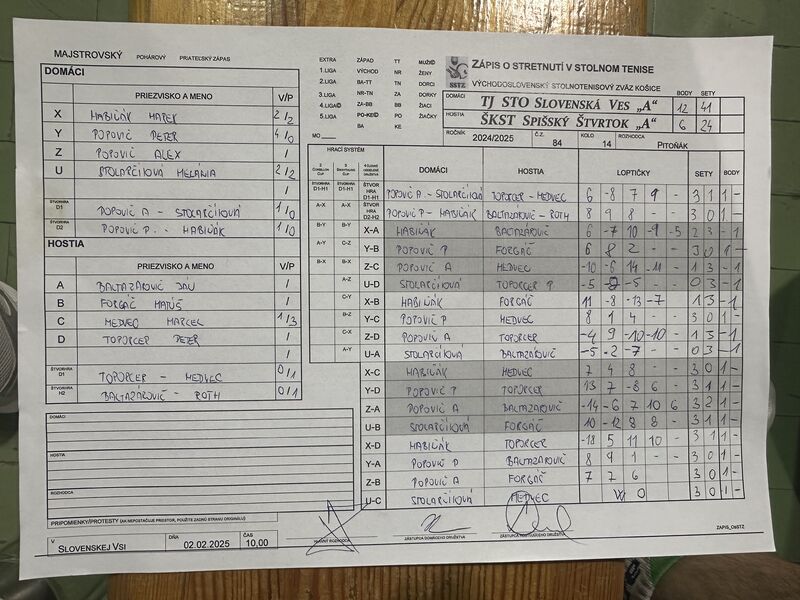 MAJSTROVSKÝ POHÁROVÝ PRIATEĽSKÝ ZÁPAS
DOMÁCI
PRIEZVISKO A MENO V/P
X HABIŇÁK MAREK 2/2
Y POPOVIČ PETER 4/0
Z POPOVIČ ALEX /
U STOLARČÍKOVÁ MELÁNIA 2/2
/
ŠTVORHRA D1 POPOVIČ A - STOLARČÍKOVÁ 1/0
ŠTVORHRA D2 POPOVIČ P. - HABIŇÁK 1/0
HOSTIA
PRIEZVISKO A MENO V/P
A BALTAZÁROVIČ JÁN /
B FORGÁČ MATÚŠ /
C MEDVEC MARCEL 1/3
D TOPORCER PETER /
/
ŠTVORHRA TOPORCER - MEDVEC 0/1
ŠTVORHRA H2 BALTAZÁROVIČ - ROTH 0/1
DOMÁCI
HOSTIA
ROZHODCA
PRIPOMIENKY/PROTESTY (AK NEPOSTAČUJE PRIESTOR, POUŽITE ZADNÚ STRANU ORIGINÁLU)
V SLOVENSKEJ VSI DŇA 02.02.2025 ČAS 10,00
EXTRA ZÁPAD TT MUŽI
1.LIGA VÝCHOD NR ŽENY
2.LIGA BA-TT TN DORCI
3.LIGA NR-TN ZA DORKY
4.LIGA ZA-BB BB ŽIACI
5.LIGA PO-KE PO ŽIAČKY
MO BA KE
SSTZ
ZÁPIS O STRETNUTÍ V STOLNOM TENISE
VÝCHODOSLOVENSKÝ STOLNOTENISOVÝ ZVÄZ KOŠICE
BODY SETY
DOMÁCI TJ STO SLOVENSKÁ VES „A" 12 41
HOSTIA ŠKST SPIŠSKÝ ŠTVRTOK „A" 6 24
ROČNÍK 2024/2025 Č.Z. 84 KOLO 14 ROZHODCA PITOŇÁK
HRACÍ SYSTÉM
DOMÁCI HOSTIA LOPTIČKY SETY BODY
D1-H1 D1-H1 ŠTVOR HRA D1-H1 POPOVIČ A - STOLARČÍKOVÁ TOPORCER - MEDVEC 6 -8 7 9 - 3 1 1 -
A-X A-X ŠTVOR HRA D2-H2 POPOVIČ P - HABIŇÁK BALTAZÁROVIČ - ROTH 8 9 8 - - 3 0 1 -
B-Y B-Y X-A HABIŇÁK BALTAZÁROVIČ 6 -7 10 -9 -5 2 3 - 1
A-Y C-Z Y-B POPOVIČ P FORGÁČ 6 8 2 - - 3 0 1 -
B-X B-X Z-C POPOVIČ A MEDVEC -10 -6 14 -11 - 1 3 - 1
A-Z U-D STOLARČÍKOVÁ TOPORCER P -5 -5 - - 0 3 - 1
C-Y X-B HABIŇÁK FORGÁČ 11 -8 -13 -7 1 3 - 1
B-Z Y-C POPOVIČ P MEDVEC 8 1 4 - - 3 0 1 -
C-X Z-D POPOVIČ A TOPORCER -4 9 -10 -10 - 1 3 - 1
A-Y U-A STOLARČÍKOVÁ BALTAZÁROVIČ -5 -2 -7 - - 0 3 - 1
X-C HABIŇÁK MEDVEC 7 4 8 - - 3 0 1 -
Y-D POPOVIČ P TOPORCER 13 7 -8 6 - 3 1 1 -
Z-A POPOVIČ A BALTAZÁROVIČ -14 -6 7 10 6 3 2 1 -
U-B STOLARČÍKOVÁ FORGÁČ 10 -12 8 8 - 3 1 1 -
X-D HABIŇÁK TOPORCER -18 5 11 10 - 3 1 1 -
Y-A POPOVIČ P BALTAZÁROVIČ 8 9 1 - - 3 0 1 -
Z-B POPOVIČ A FORGÁČ 7 7 6 3 0 1 -
U-C STOLARČÍKOVÁ MEDVEC W O 3 0 1 -
HLAVNÝ ROZHODCA ZÁSTUPCA DOMÁCEHO DRUŽSTVA ZÁSTUPCA HOSŤUJÚCEHO DRUŽSTVA
ZÁPIS_OsSTZ